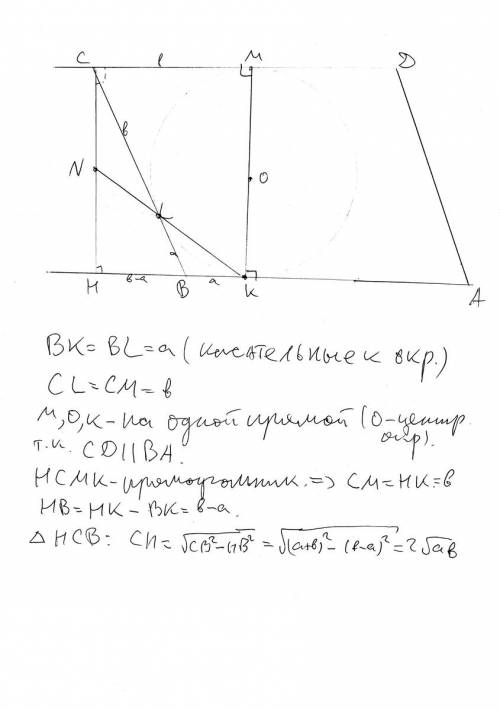 C в M D
в
N L O
а
H в-а B а K A
BK = BL = а (касательные к окр.)
CL = CM = в
M, O, K - на одной прямой (O - центр окр).
т.к. CD || BA.
HCMK - прямоугольник. => CM = HK = в
HB = HK - BK = в-а.
△ HCB: CH = √CB² - HB² = √(а+в)² - (в-а)² = 2√ав